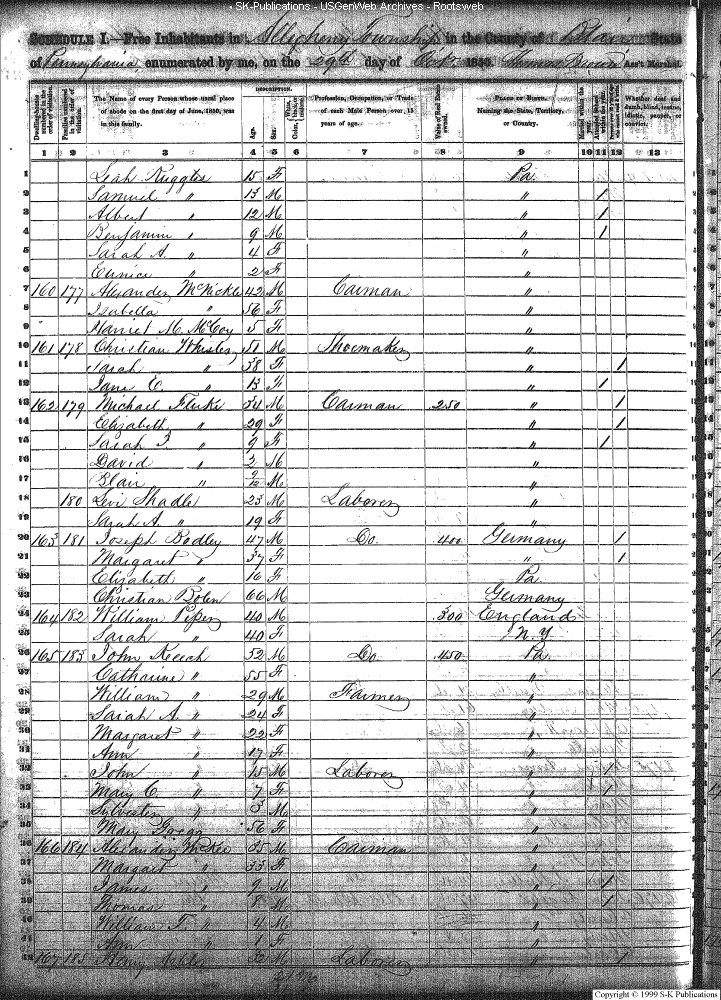 - SK-Publications - USGenWeb Archives - Rootsweb
SCHEDULE I.—Free Inhabitants in Allegheny Township in the County of Blair State
of Pennsylvania, enumerated by me, on the 29th day of Oct 1850. Thomas Brown Ass't Marshal.
DESCRIPTION.
Dwelling-houses numbered in the order of visitation.
Families numbered in the order of visitation.
The Name of every Person whose usual place of abode on the first day of June, 1850, was in this family.
Age.
Sex.
Profession, Occupation, or Trade of each Male Person over 15 years of age.
Value of Real Estate owned.
PLACE OF BIRTH. Naming the State, Territory, or Country.
Married within the year.
Whether deaf and dumb, blind, insane, idiotic, pauper, or convict.
1 2 3 4 5 6 7 8 9 10 11 12 13
1 Leah Ruggles 15 F Pa.
2 Samuel " 13 M " /
3 Albert " 12 M " /
4 Benjamin " 9 M " /
5 Sarah A. " 4 F "
6 Eunice " 2 F "
7 160 177 Alexander McNickle 42 M Carman "
8 Isabella " 56 F "
9 Harriet M. McCoy 5 F "
10 161 178 Christian Whisler 51 M Shoemaker "
11 Sarah " 38 F " /
12 Jane E. " 13 F " /
13 162 179 Michael Fluke 34 M Carman 250 " /
14 Elizabeth " 29 F " /
15 Sarah J. " 9 F " /
16 David " 3 M "
17 Blair " M "
18 180 Levi Shadle 23 M Laborer "
19 Sarah A. " 19 F "
20 163 181 Joseph Bodley 47 M Do. 400 Germany /
21 Margaret " 37 F " /
22 Elizabeth " 16 F Pa.
23 Christian Bolen 66 M Germany
24 164 182 William Piper 40 M 300 England
25 Sarah " 40 F N.Y
26 165 183 John Keech 52 M Do 450 Pa.
27 Catharine " 55 F "
28 William " 29 M Farmer "
29 Sarah A. " 24 F "
30 Margaret " 22 F "
31 Ann " 17 F "
32 John " 15 M Laborer " /
33 Mary C. " 7 F " /
34 Sylvester " M "
35 Mary Gregg 56 F "
36 166 184 Alexander McKee 35 M Carman "
37 Margaret " 33 F "
38 James " 9 M " /
39 Thomas " 8 M " /
40 William F. " 4 M "
41 Ann " 1 F "
42 167 185 Henry M Laborer " /
Copyright © 1999 S-K Publications